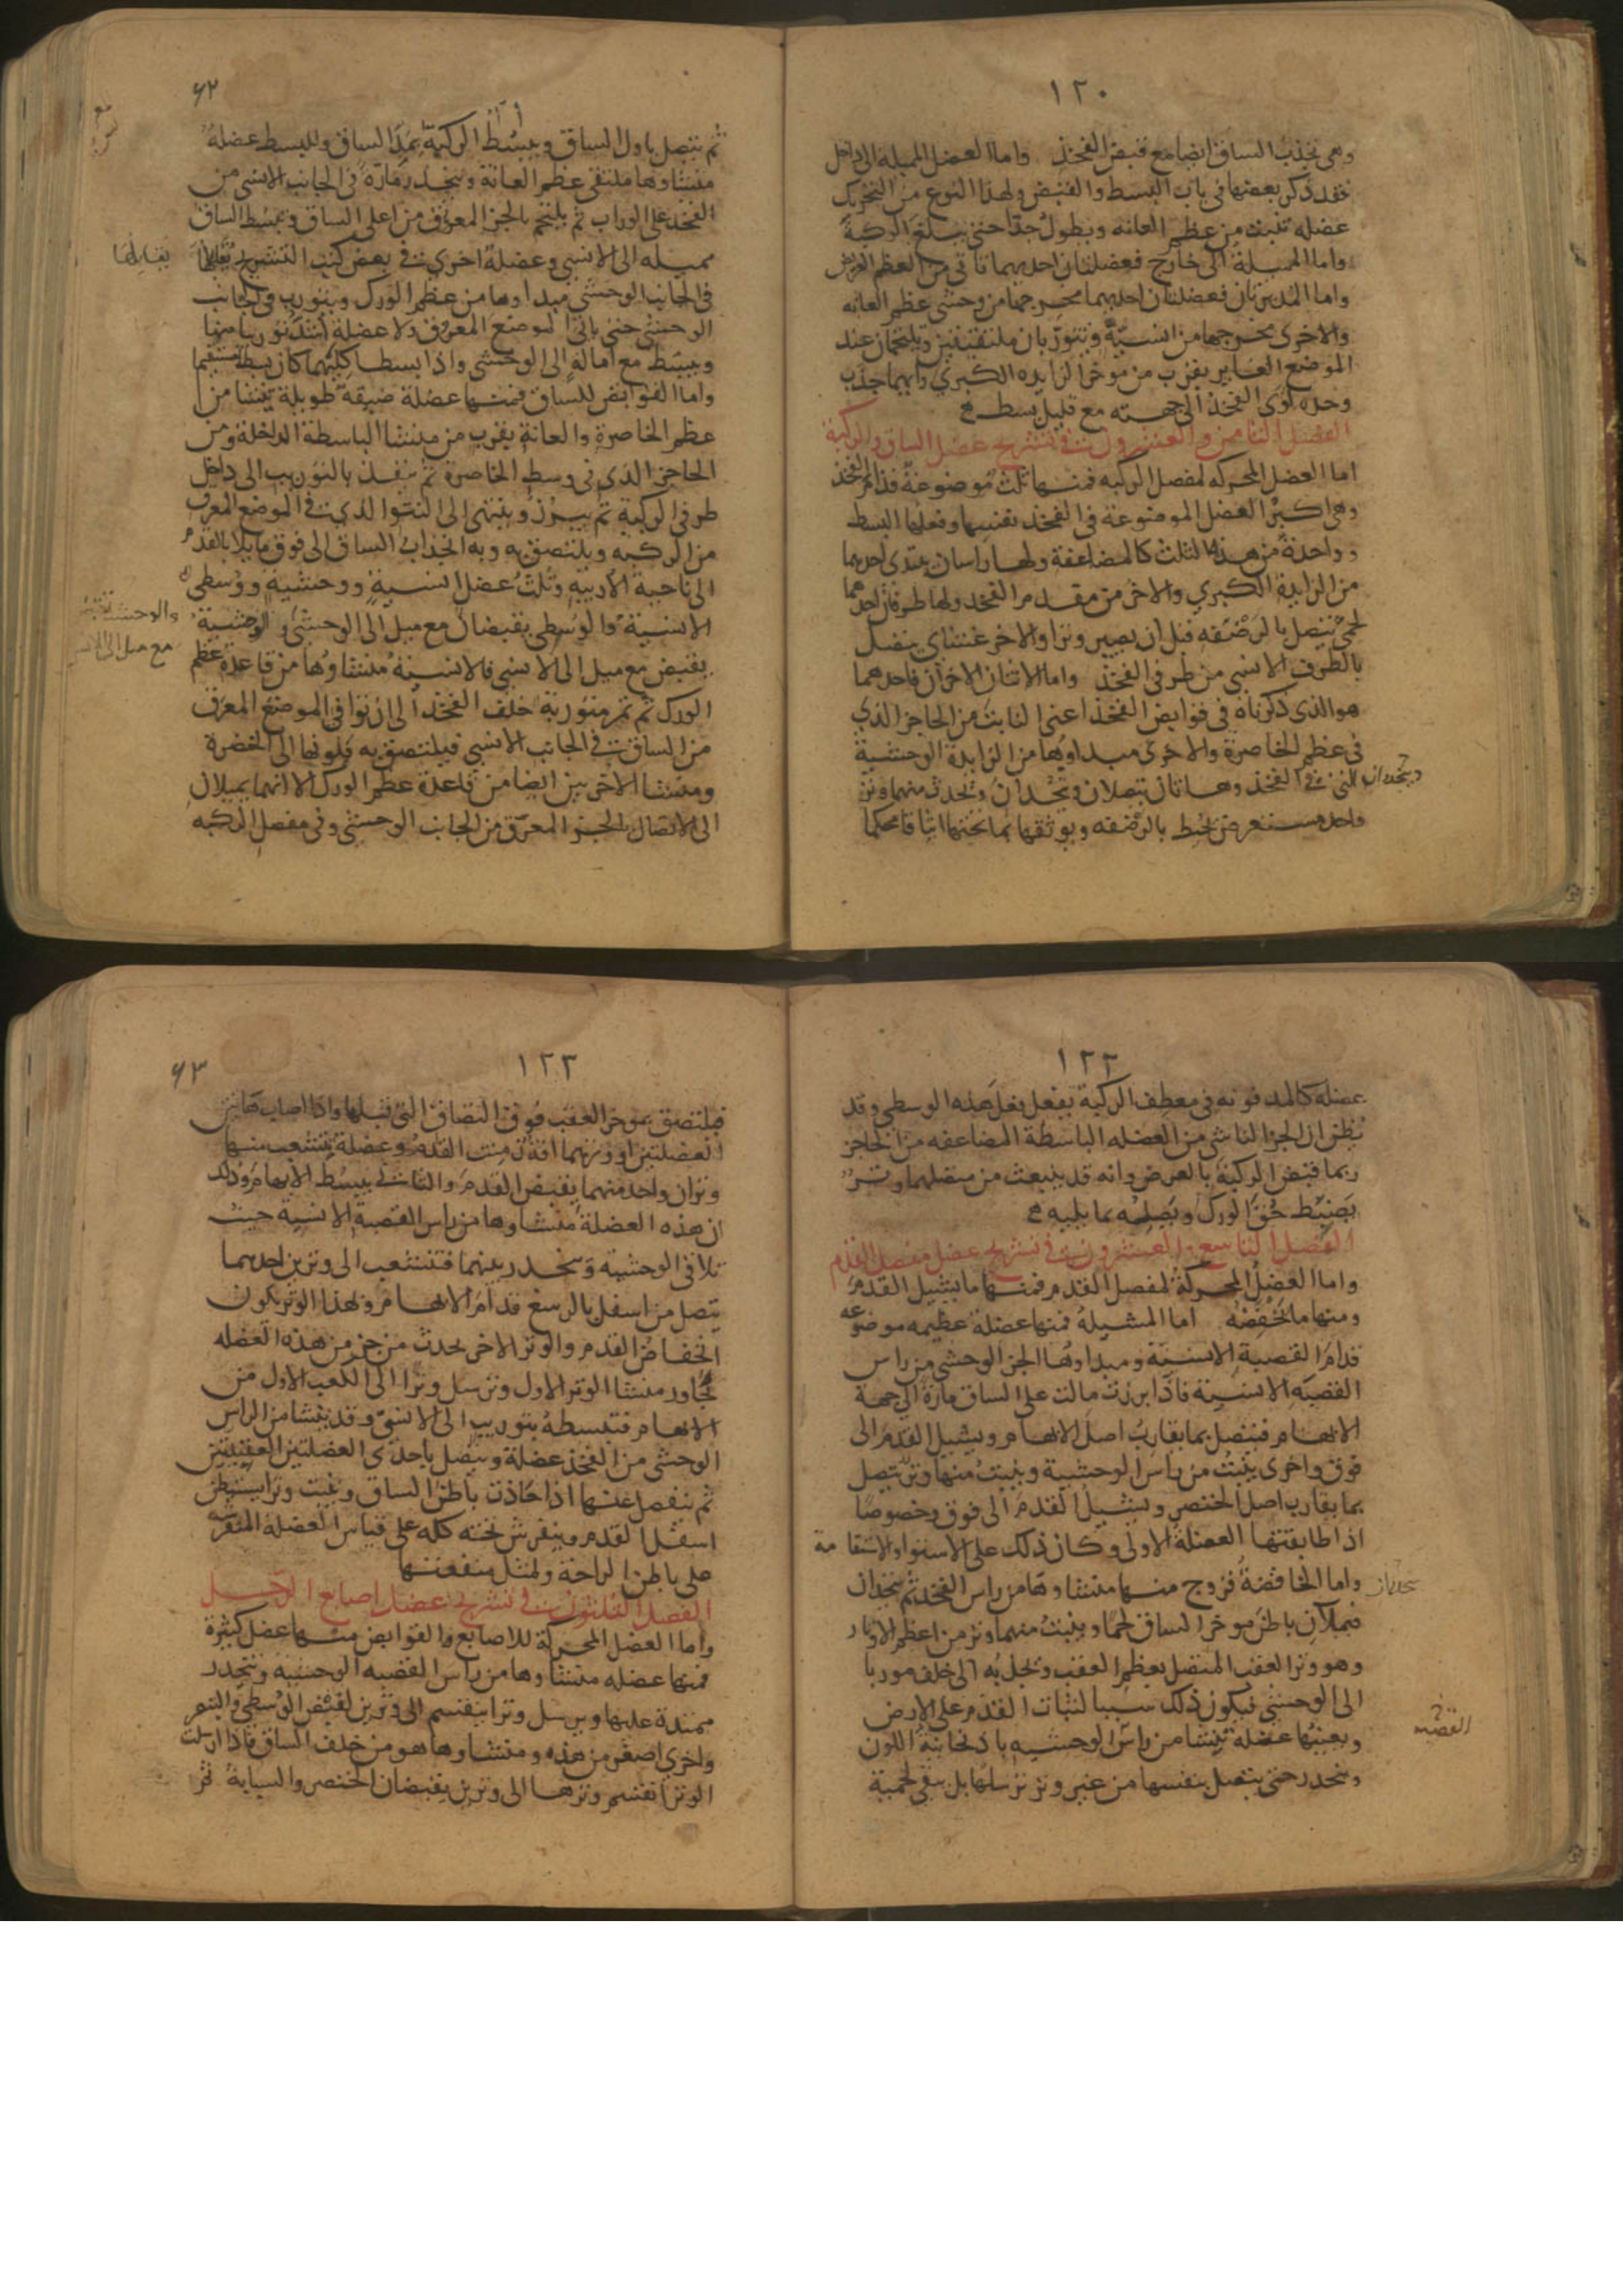 ١٢٠
وهى تجذب الساق ايضا مع قبض الفخذ واما العضل المميلة الى داخل
فقد ذكر بعضها فى باب البسط والقبض ولهذا النوع من التحريك
عضلة تنبت من عظم العانه وتطول جدا حتى تبلغ الركبة
واما المميلة الى خارج فعضلتان احديهما تاتى من العظم العريض
واما المديرتان فعضلتان احديهما مخرجها من وحشى عظم العانه
والاخرى مخرجها من انسيه وتتوربان ملتقيتين وتلتحمان عند
الموضع الغاير بقرب من موخر الزايده الكبرى وايهما جذب
وحده لوى الفخذ الى جهته مع قليل بسط
الفصل الثامن والعشرون فى تشريح عضل الساق والركبة
اما العضل المحركه لمفصل الركبه فمنها ثلث موضوعة قدام الفخذ
وهى اكبر العضل الموضوعة فى الفخذ نفسها وفعلها البسط
وواحدة من هذه الثلث كالمضاعفة ولها راسان يبتدى احدهما
من الزايدة الكبرى والاخر من مقدم الفخذ ولها طرفان احدهما
لحمى يتصل بالرضفه قبل ان يصير وترا والاخر غشائى يتصل
بالطرف الانسى من طرفى الفخذ واما الاثنان الاخران فاحدهما
هو الذى ذكرناه فى قوابض الفخذ اعنى النابت من الحاجز الذى
فى عظم الخاصرة والاخرى مبداوها من الزايدة الوحشية
التى فى الفخذ وهاتان تتصلان وتتحدان وتحدث منهما وتر
واحد مستعرض يحيط بالرضفه ويوثقها بما تحتها ايثاقا محكما
وينحدران
٦٢
ثم يتصل باول الساق ويبسط الركبة بمد الساق وللبسط عضلة
منشاوها ملتقى عظم العانة وينحدر مارة فى الجانب الانسى من
الفخذ على الوراب ثم يلتحم بالجزء المعرق من اعلى الساق ويبسط الساق
مميله الى الانسى وعضلة اخرى فى بعض كتب التشريح تقابلها
فى الجانب الوحشى مبداوها من عظم الورك ويتورب فى الجانب
الوحشى حتى ياتى الموضع المعروف ولا عضلة اشد توريبا منها
ويبسط مع امالة الى الوحشى واذا بسطا كلتيهما كان بسطا مستقيما
واما القوابض للساق فمنها عضلة ضيقة طويلة تنشا من
عظم الخاصرة والعانة بقرب من منشا الباسطة الداخلة ومن
الحاجز الذى فى وسط الخاصرة ثم ينفذ بالتوريب الى داخل
طرفى الركبة ثم يبرز وينتهى الى النتوا الذى فى الموضع المعرق
من الركبه ويلتصق به وبه انجذاب الساق الى فوق مايلا بالقدم
الى ناحية الاربيه وثلث عضل انسية ووحشية ووسطى
الانسية والوسطى يقبضان مع ميل الى الوحشى والوحشية
يقبض مع ميل الى الانسى فالانسية منشاوها من قاعدة عظم
الورك ثم تمر متوربة خلف الفخذ الى ان توافى الموضع المعرق
من الساق فى الجانب الانسى فيلتصق به ولونها الى الخضرة
ومنشا الاخريين ايضا من قاعدة عظم الورك الا انهما يميلان
الى الاتصال بالجزء المعرق من الجانب الوحشى وفى مفصل الركبه
يقابلها
والوحشية تقبض
مع ميل الى الانسى
١٢٢
عضله كالمدفونه فى معطف الركبة يفعل فعل هذه الوسطى وقد
يظن ان الجزء الناشى من العضله الباسطة المضاعفه من الحاجز
ربما قبض الركبة بالعرض وانه قد ينبعث من متصلهما وتر
يضبط حق الورك ويصله بما يليه
الفصل التاسع والعشرون فى تشريح عضل مفصل القدم
واما العضل المحركة لمفصل القدم فمنها ما يشيل القدم
ومنها ما يخفضه اما المشيلة فمنها عضلة عظيمه موضوعه
قدام القصبة الانسية ومبداوها الجزء الوحشى من راس
القصبه الانسية فاذا برزت مالت على الساق مارة الى جهة
الابهام فيتصل بما يقارب اصل الابهام ويشيل القدم الى
فوق واخرى ينبت من راس الوحشية وينبت منها وتر يتصل
بما يقارب اصل الخنصر ويشيل القدم الى فوق وخصوصا
اذا طابقتها العضلة الاولى وكان ذلك على الاستوا والاستقامة
واما الخافضة فزوج منها منشاوها من راس الفخذ ثم ينحدان
فيملان باطن موخر الساق لحما وينبت منهما وتر من اعظم الاوتار
وهو وتر العقب المتصل بعظم العقب ويجذبه الى خلف موربا
الى الوحشى فيكون ذلك سببا لثبات القدم على الارض
ويعينها عضلة تنشا من راس الوحشيه باذنجانية اللون
وينحدر حتى يتصل بنفسها من غير وتر ترسلها بل يبقى لحمية
القصبه
١٢٣
٦٣
فيلتصق بموخر العقب فوق التصاق التى قبلها واذا اصاب هاتين
العضلتين او وترهما افة زمنت القدم وعضلة يتشعب منها
وتران واحد منهما يقبض القدم والثانى يبسط الابهام وذلك
ان هذه العضلة منشاوها من راس القصبة الانسية حيث
تلاقى الوحشية وينحدر بينهما فتنشعب الى وترين احدهما
يتصل من اسفل بالرسغ قدام الابهام وبهذا الوتر يكون
انخفاض القدم والوتر الاخر يحدث من جزء من هذه العضله
يجاور منشا الوتر الاول وترسل وترا الى الكعب الاول من
الابهام فتبسطه بتوريب الى الانسى وقد ينشا من الراس
الوحشى من الفخذ عضلة ويتصل باحدى العضلتين العقبيتين
ثم ينفصل عنها اذا حاذت باطن الساق وينبت وترا يستبطن
اسفل القدم وينفرش تحته كله على قياس العضلة المنفرشه
على باطن الراحة ولمثل منفعتها
الفصل الثلثون فى تشريح عضل اصابع الرجل
واما العضل المحركة للاصابع والقوابض منها عضل كثيرة
فمنها عضله منشاوها من راس القصبه الوحشيه وينحدر
ممتدة عليها ويرسل وترا ينقسم الى وترين لقبض الوسطى والبنصر
واخرى اصغر من هذه ومنشاوها هو من خلف الساق فاذا ارسلت
الوتر انقسم وترها الى وترين يقبضان الخنصر والسبابة ثم